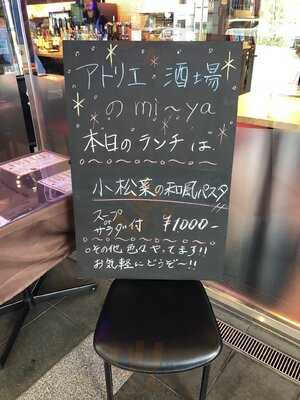 アトリエ 酒場
のmi~ya
本日のランチは
小松菜の和風パスタ
スープ
or
サラダ付 ¥1000-
その他色々やってます!!
お気軽にどうぞ〜!!